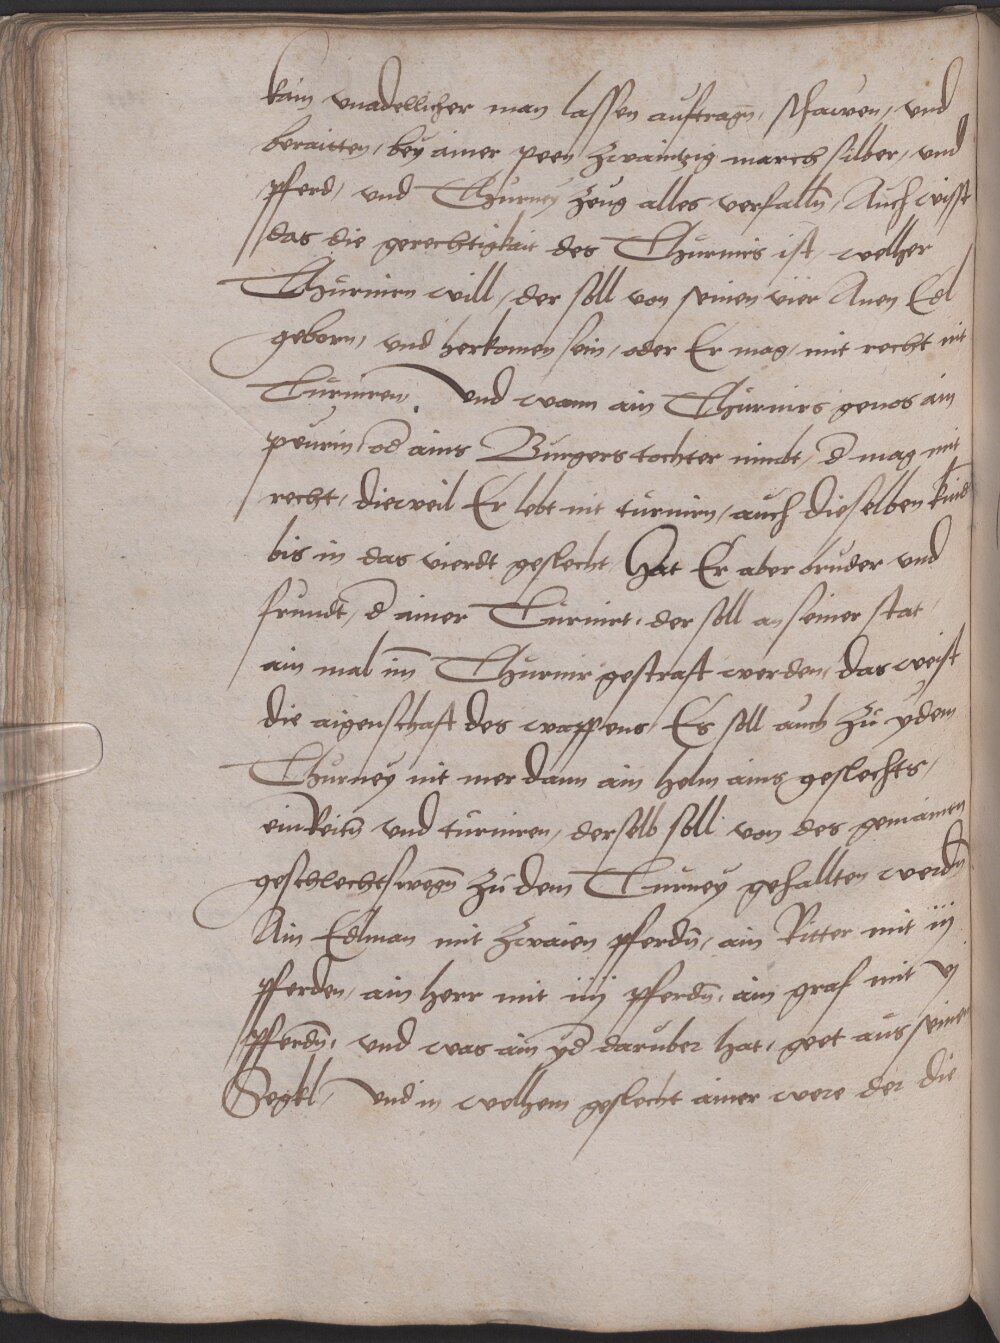 kain vnadellicher man lassen auftragn̄, schawen, vnd
beraitten, bey ainer peen zwaintzig march silber, vnd
pferd, vnd Thurney zeug alles verfalln̄, Auch wisst
das die gerechtigkait des Thurnirs ist, welher
Thurnirn will, der soll von seinen vier Anen Edl
geborn, vnd herkomen sein, oder Er mag, mit recht nit
Turniren. Vnd wann ain Thurnirs genos ain
peurin, od ains Burgers tochter nimbt, d mag mit
recht, dieweil Er lebt nit turnirn, auch dieselben kind
bis in das vierdt geslecht, Hat Er aber bruder vnd
frundt, d ainer Turnirt, der soll an seiner stat
ain mal im̄ Thurnir gestraft werden, das weist
die aigenschaft des wappens, Es soll auch zu ydem
Thurney nit mer dann ain helm ains geslechts,
ein Reitn̄ vnd turniren, derselb soll von des gemainen
geschlechts wegn̄ zu dem Turney gehallten werdn̄
Ain Edlman mit zwaien pferdn̄, ain Ritter mit iij
pferden, ain herr mit iiij pferdn̄, ain graf mit vj
pferdn̄, vnd was ain yd daruber hat, geet aus seinem
Segkl, Vnd in welhem geslecht ainer were der die